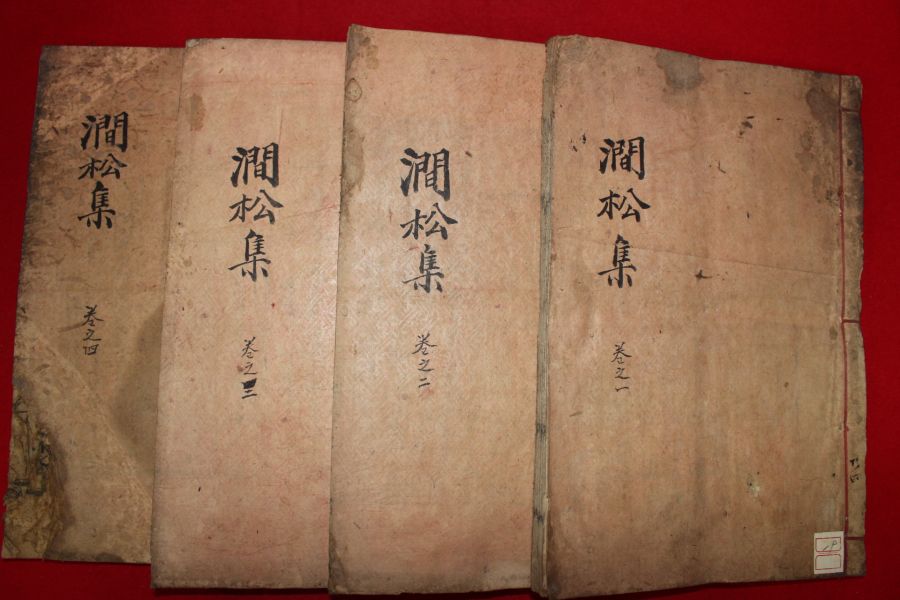 澗松集
卷之一
澗松集
卷之二
澗松集
卷之三
澗松集
卷之四